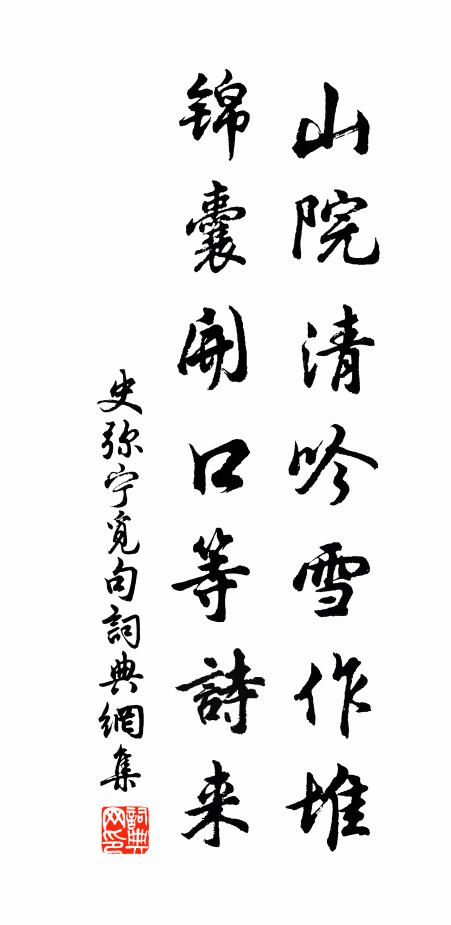 山院清吟雪作堆
锦囊開口等詩来
史弥宁觅句詞典網集
詞典网印